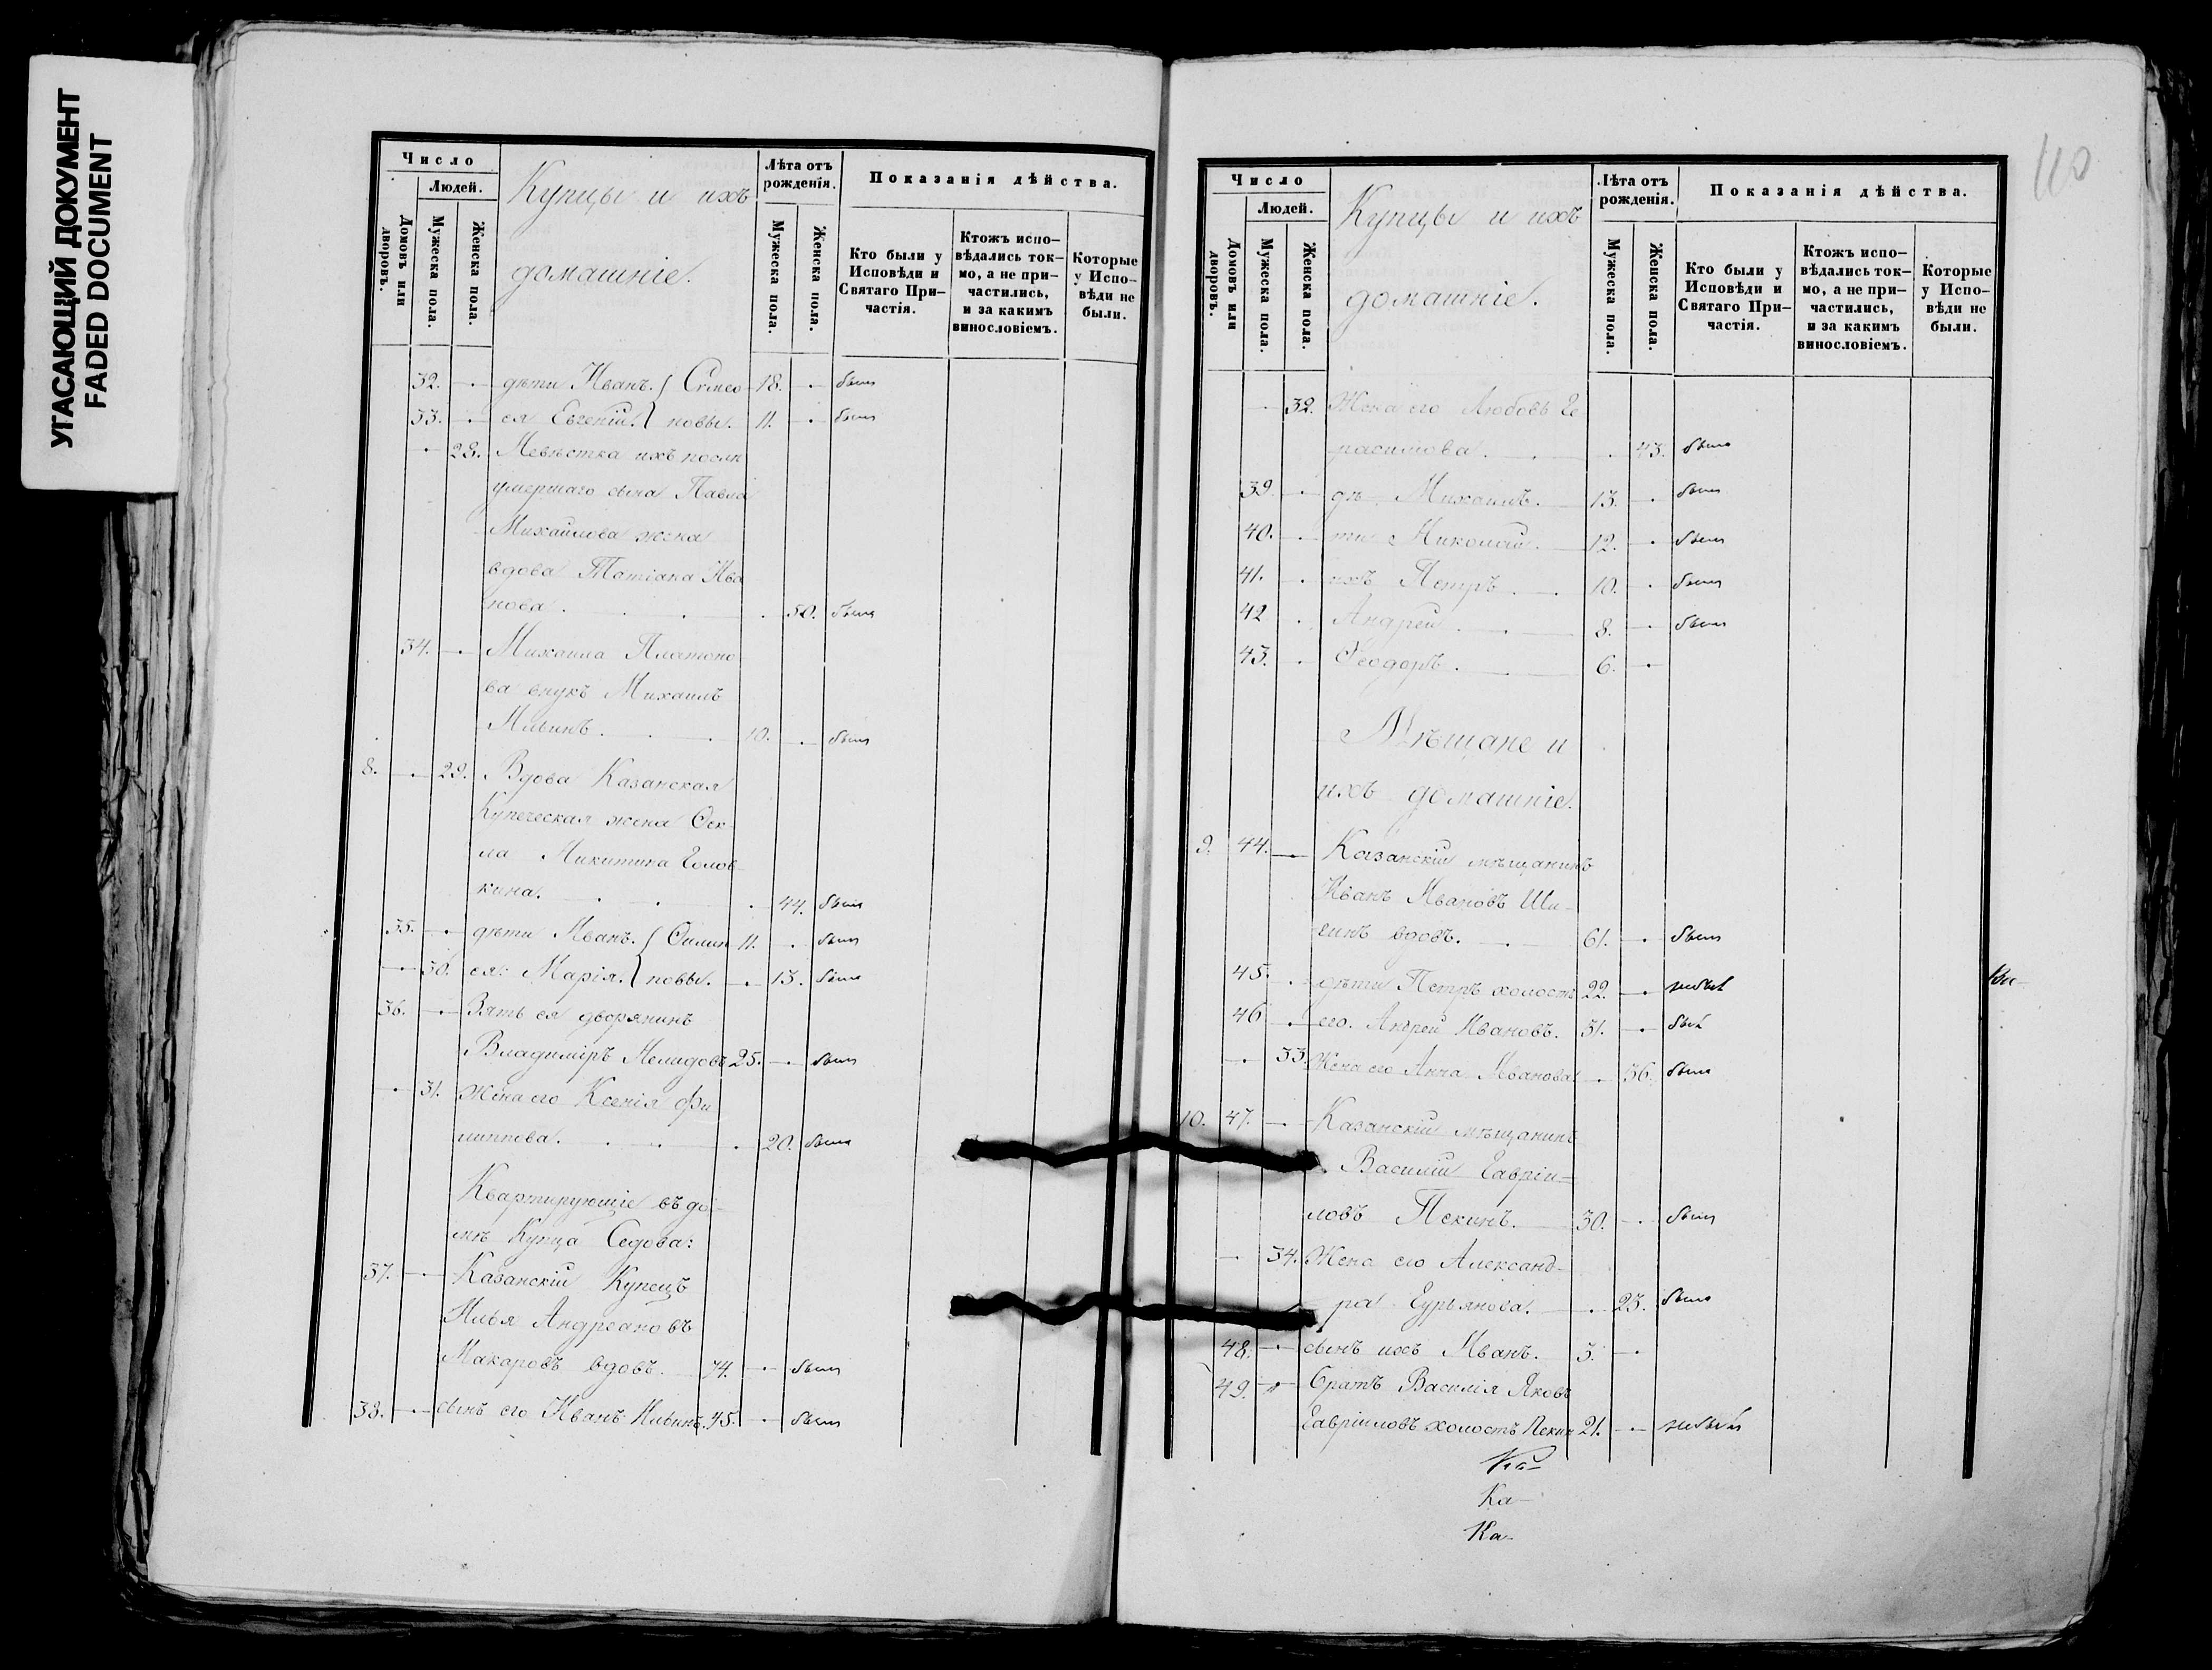 УГАСАЮЩИЙ ДОКУМЕНТ
FADED DOCUMENT
Число
Людей.
Домовъ или дворовъ.
Мужеска пола.
Женска пола.
Купцы и ихъ
домашніе.
Лѣта отъ рожденія.
Мужеска пола.
Женска пола.
Показанія дѣйства.
Кто были у Исповѣди и Святаго При-
частія.
Ктожъ испо-
вѣдались ток-
мо, а не при-
частились,
и за какимъ
винословіемъ.
Которые
у Испо-
вѣди не
были.
32. дѣти Иванъ. Симео 18. былъ
33. ея Евгеній. новы. 11. былъ
28. Невѣстка ихъ послѣ
умершаго сына Павла
Михайлова жена
вдова Татіана Ива
нова. 50. была
34. Михаила Платоно
ва внукъ Михаилъ
Ильинъ. 10. былъ
8. 29. Вдова Казанская
Купеческая жена Ѳек
ла Никитина Голов
кина. 44. была
35. дѣти Иванъ. Филип 11. былъ
30. ея: Марія. повы. 13. была
36. Зять ея дворянинъ
Владиміръ Нелидовъ 25. былъ
31. Жена его Ксенія Фи
липпова. 20. была
Квартирующіе въ до
мѣ Купца Седова:
37. Казанскій Купецъ
Илья Андреановъ
Макаровъ вдовъ. 74. былъ
38. сынъ его Иванъ Ильинъ. 45. былъ
110
Число
Людей.
Домовъ или дворовъ.
Мужеска пола.
Женска пола.
Купцы и ихъ
домашніе.
Лѣта отъ рожденія.
Мужеска пола.
Женска пола.
Показанія дѣйства.
Кто были у
Исповѣди и
Святаго При-
частія.
Ктожъ испо-
вѣдались ток-
мо, а не при-
частились,
и за какимъ
винословіемъ.
Которые
у Испо-
вѣди не
были.
32. Жена его Любовь Ге
расимова. 43. была
39. дѣ Михаилъ. 13. былъ
40. ти Николай. 12. былъ
41. ихъ Петръ. 10. былъ
42 Андрей. 8. былъ
43. Ѳеодоръ. 6.
Мѣщане и
ихъ домашніе.
9. 44. Казанскій мѣщанинъ
Иванъ Ивановъ Ши-
вдовъ. 61. былъ
45. дѣти Петръ холостъ 22. небылъ
46 его. Андрей Ивановъ. 31. былъ
33. Жена его Анна Иванова 36. была
10. 47. Казанскій мѣщанинъ
Василій Гавріи-
ловъ Пекинъ. 30. былъ
34. Жена его Александ-
ра Гурьянова. 23. была
48. сынъ ихъ Иванъ. 3.
49. братъ Василія Яковъ
Гавріиловъ холостъ Пекин 21. небылъ
Ка-
Ка-
Ка-